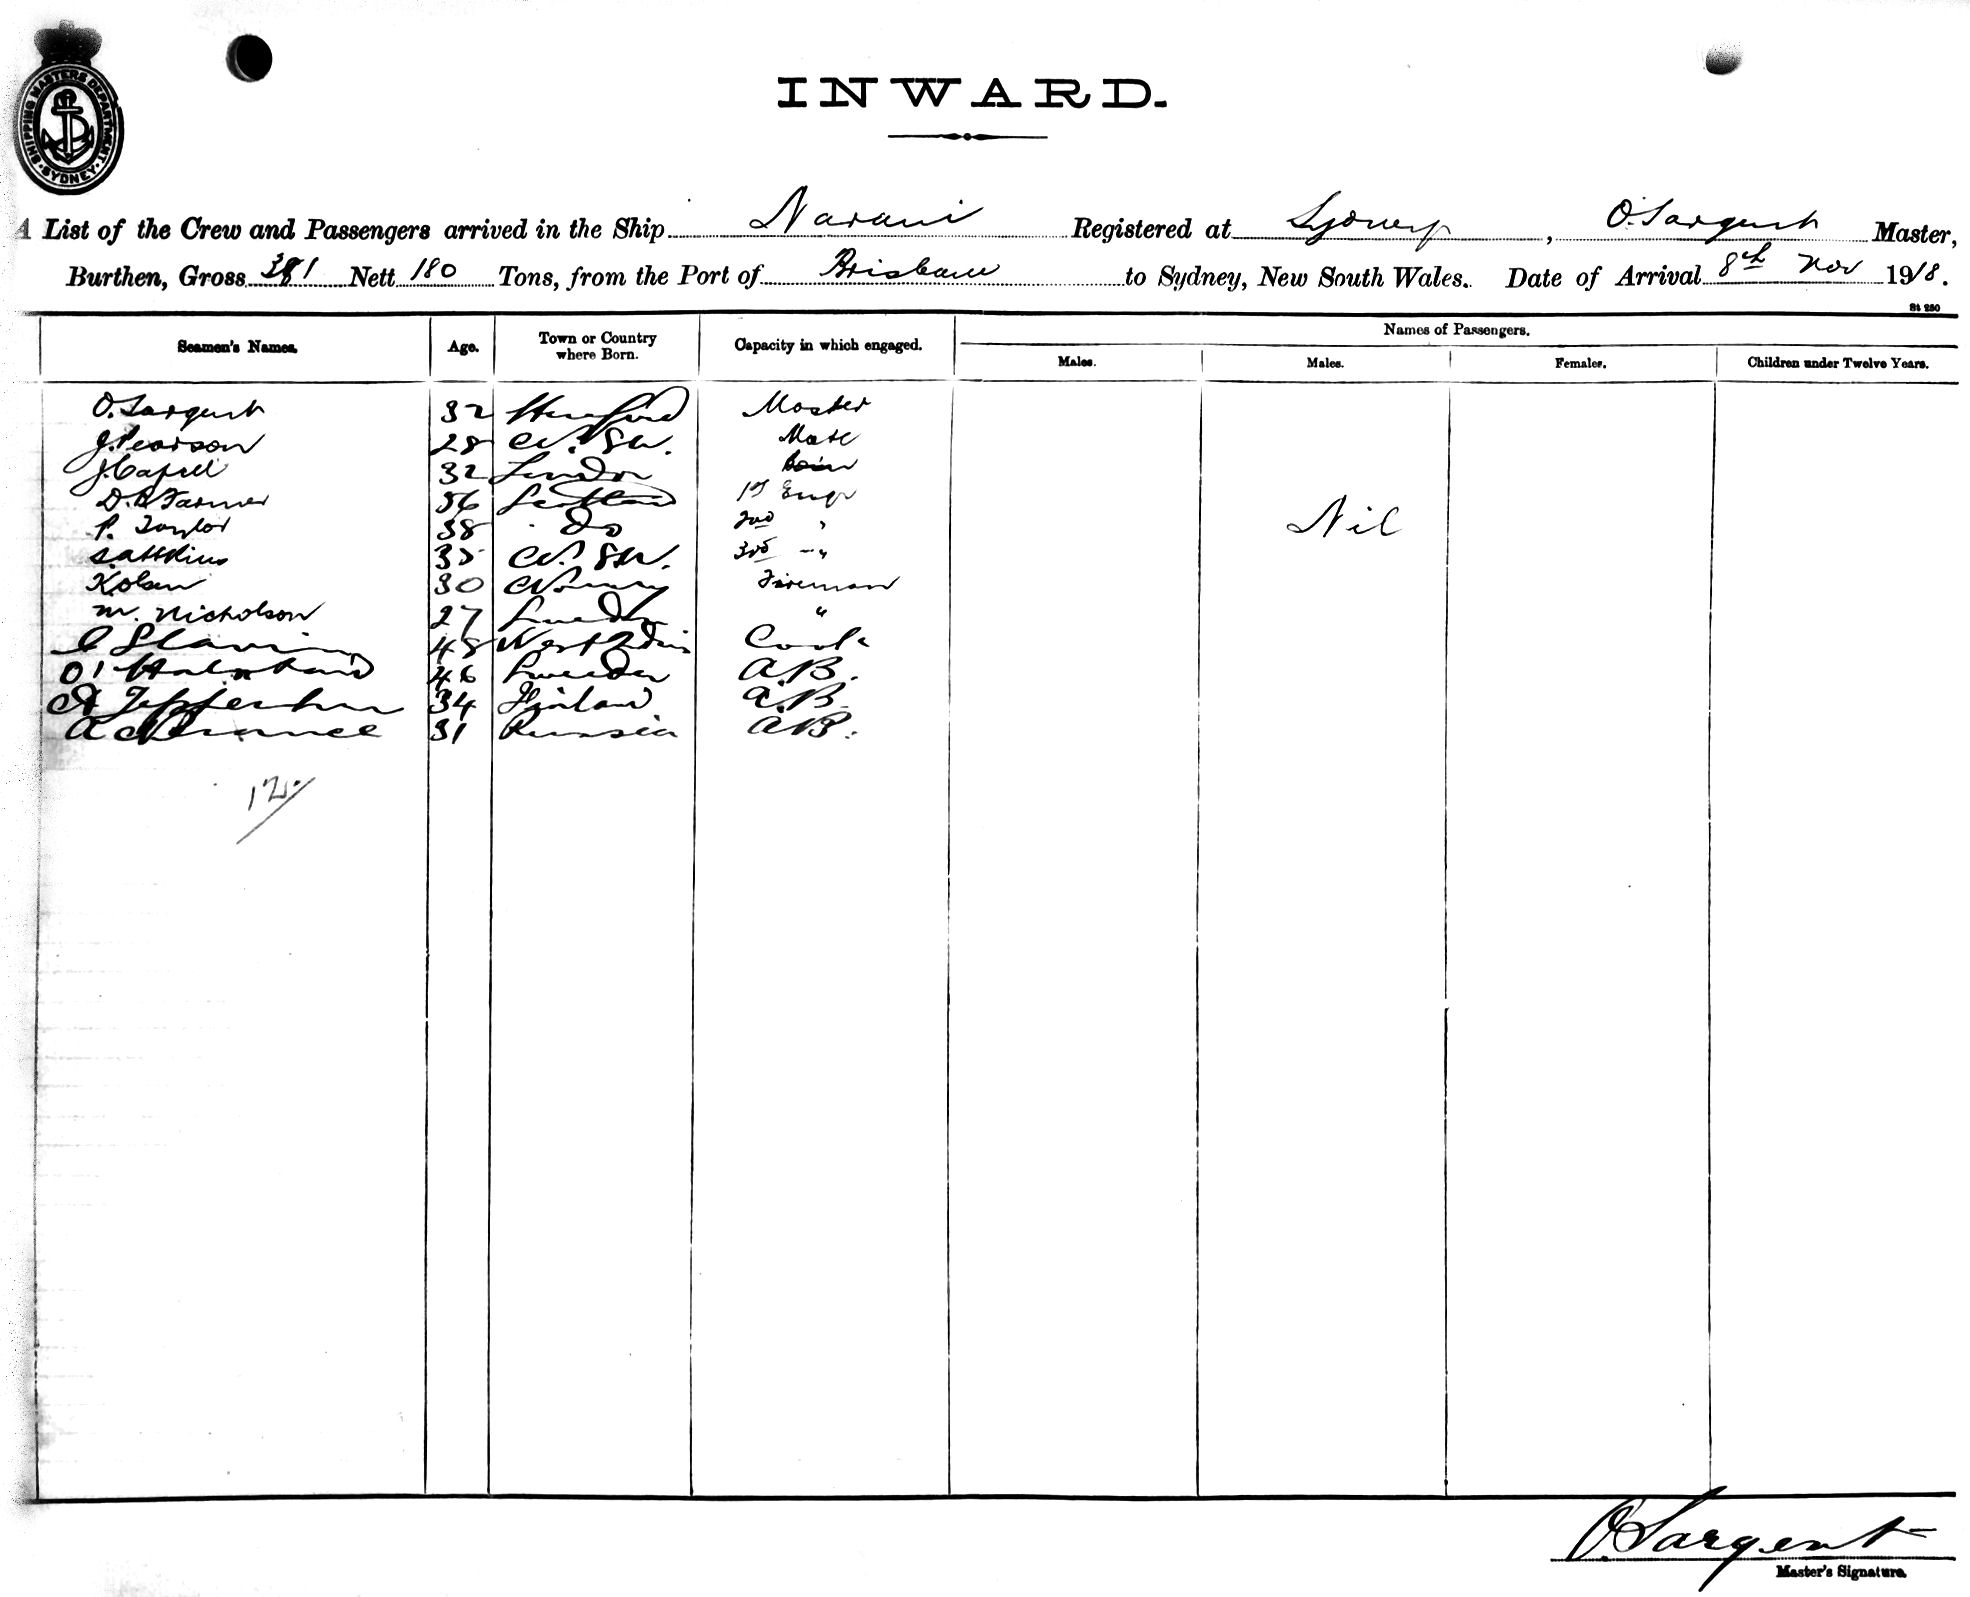 SHIPPING MASTERS DEPARTMENT SYDNEY
INWARD.
A List of the Crew and Passengers arrived in the Ship Narani Registered at Sydney, O. Sargent Master,
Burthen, Gross 381 Nett 180 Tons, from the Port of Brisbane to Sydney, New South Wales. Date of Arrival 8th Nov 1918.
St 250
Seamen's Names. Age. Town or Country where Born. Capacity in which engaged. Names of Passengers.
Males. Males. Females. Children under Twelve Years.
O. Sargent 32 Hereford Master
J. Pearson 28 N.S.W. Mate
J. Capell 32 London
D. R Farmer 56 Scotland 1st Engr
P. Taylor 38 Do 2nd "
S. Attkins 35 N.S.W. 3rd - "
K Olsen 30 Norway Fireman
M. Nicholson 27 Sweden "
Nil
C Slavin 48 West Indis Cook
46 Sweden A.B.
34 Finland A.B.
A 31 Russia A.B.
12
O. Sargent
Master's Signature.